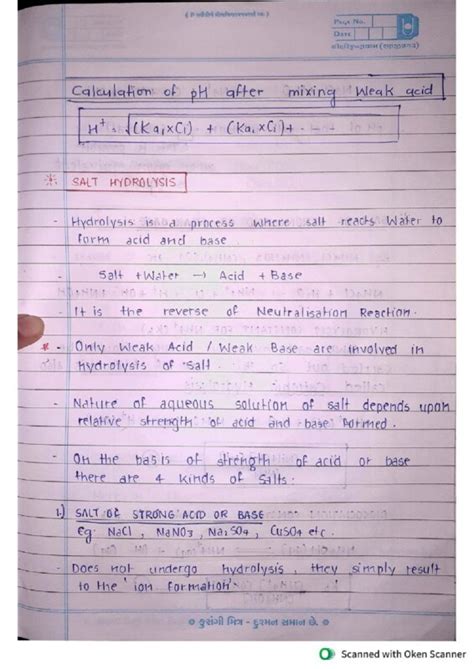 Page No.
Date
Calculation of pH after mixing Weak acid
H⁺ = √(Ka₁×C₁) + (Ka₁×C₁)+ ---
* SALT HYDROLYSIS
- Hydrolysis is a process where salt reacts Water to
form acid and base.
- Salt + Water → Acid + Base
- It is the reverse of Neutralisation Reaction.
* - Only Weak Acid / Weak Base are involved in
hydrolysis of salt.
- Nature of aqueous solution of salt depends upon
relative strength of acid and base formed.
- On the basis of strength of acid or base
there are 4 kinds of salts.
1.) SALT OF STRONG ACID OR BASE
eg: NaCl, NaNO₃, Na₂SO₄, CuSO₄ etc.
- Does not undergo hydrolysis, they simply result
to the 'ion formation'.
કુસંગી મિત્ર - દુશ્મન સમાન છે.
Scanned with Oken Scanner